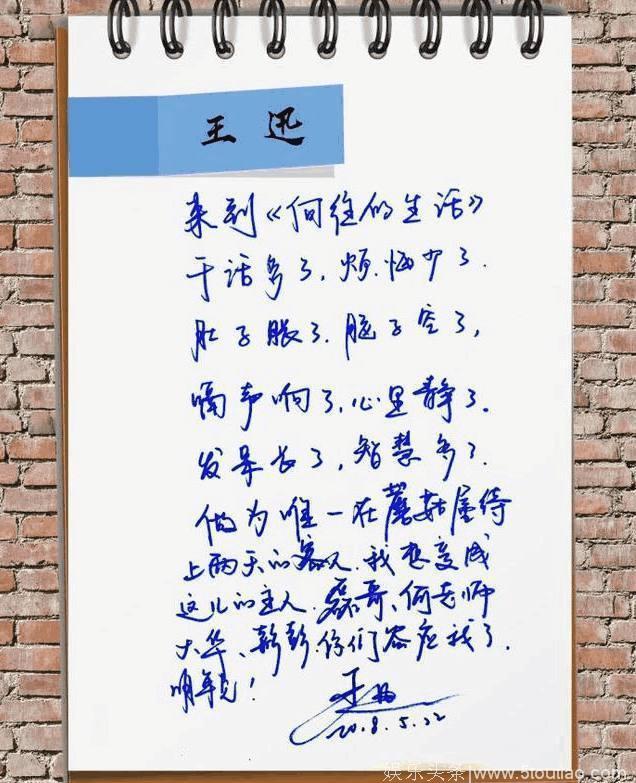 王 迅
来到《向往的生活》
干活多了,烦恼少了.
肚子胀了.脑子空了,
嗝声响了,心里静了.
发呆长了,智慧多了.
做为唯一在蘑菇屋待
上两天的客人.我想变成
这儿的主人.磊哥、何老师
大华、彭彭.你们答应我了.
明年见!
王迅
2018.5.22
娱乐头条|www.5touliao.com